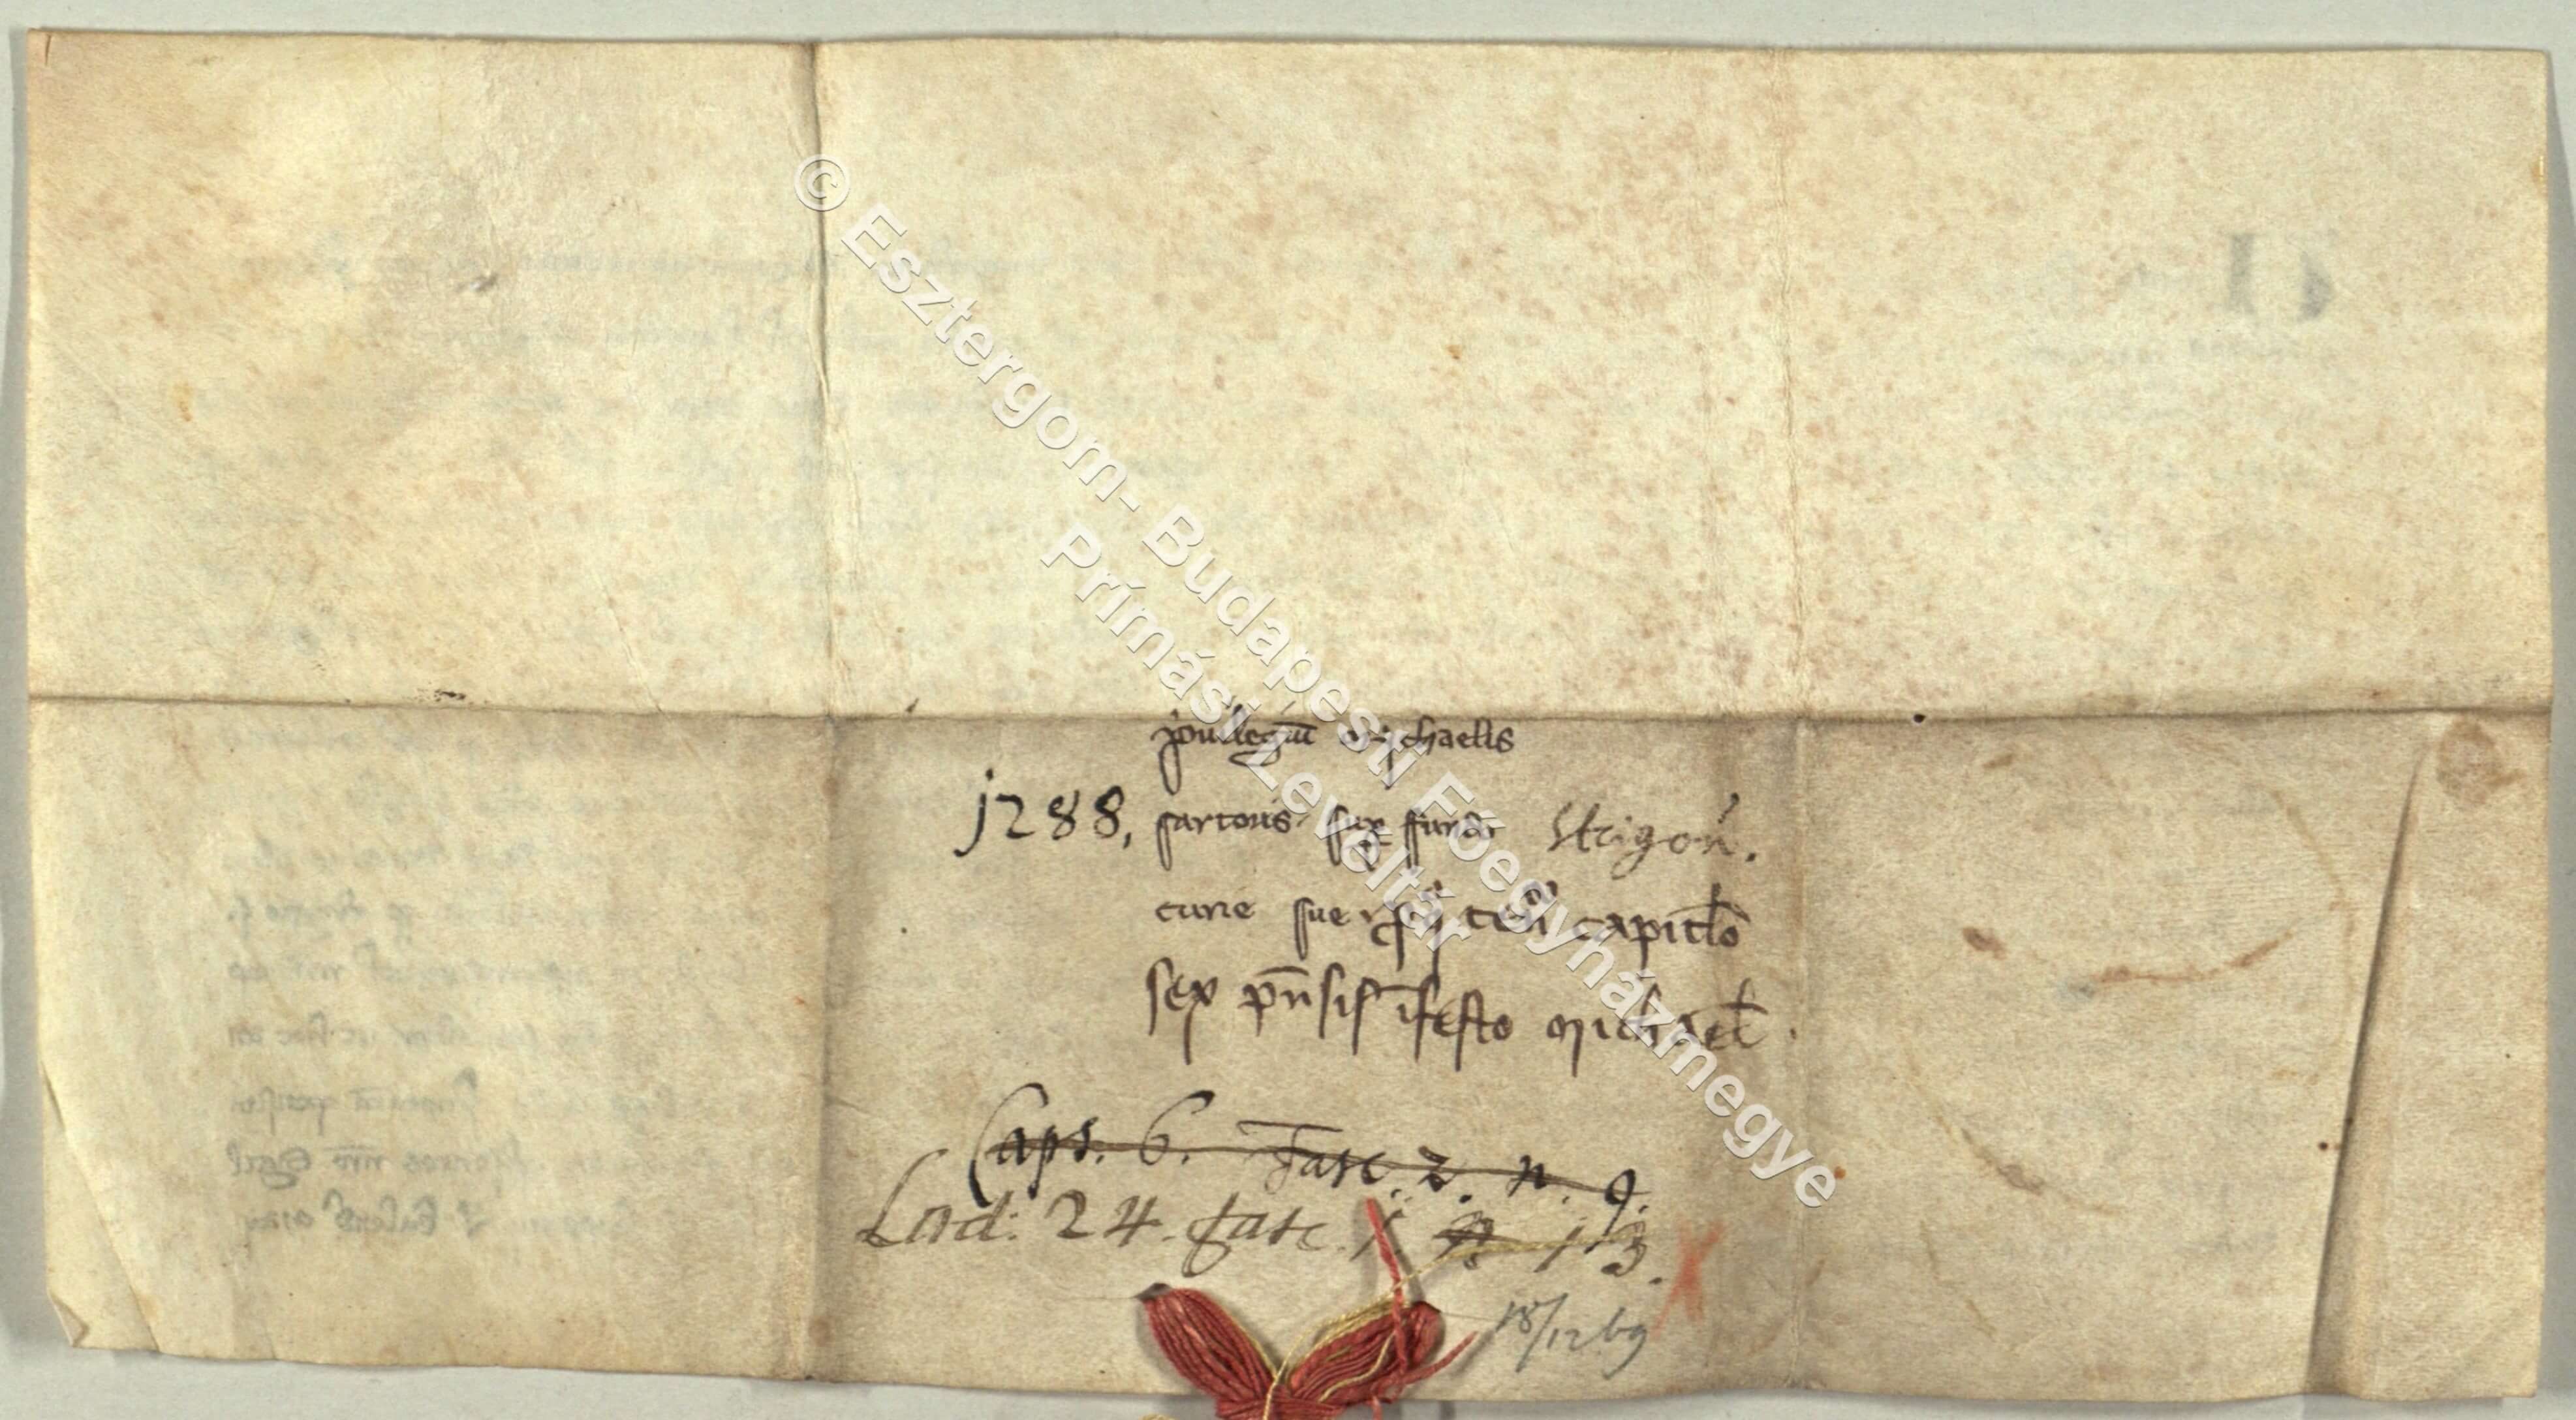 © Esztergom-Budapesti Főegyházmegye
Prímási Levéltár
michaelis
1288, sartoris sup fundo Strigon.
curie sue capitlo
sex pnsis ifesto michael.
Caps. 6. Fasc. 2. n. 9.
Lad: 24. fasc. 1 n 13.
18/12 69